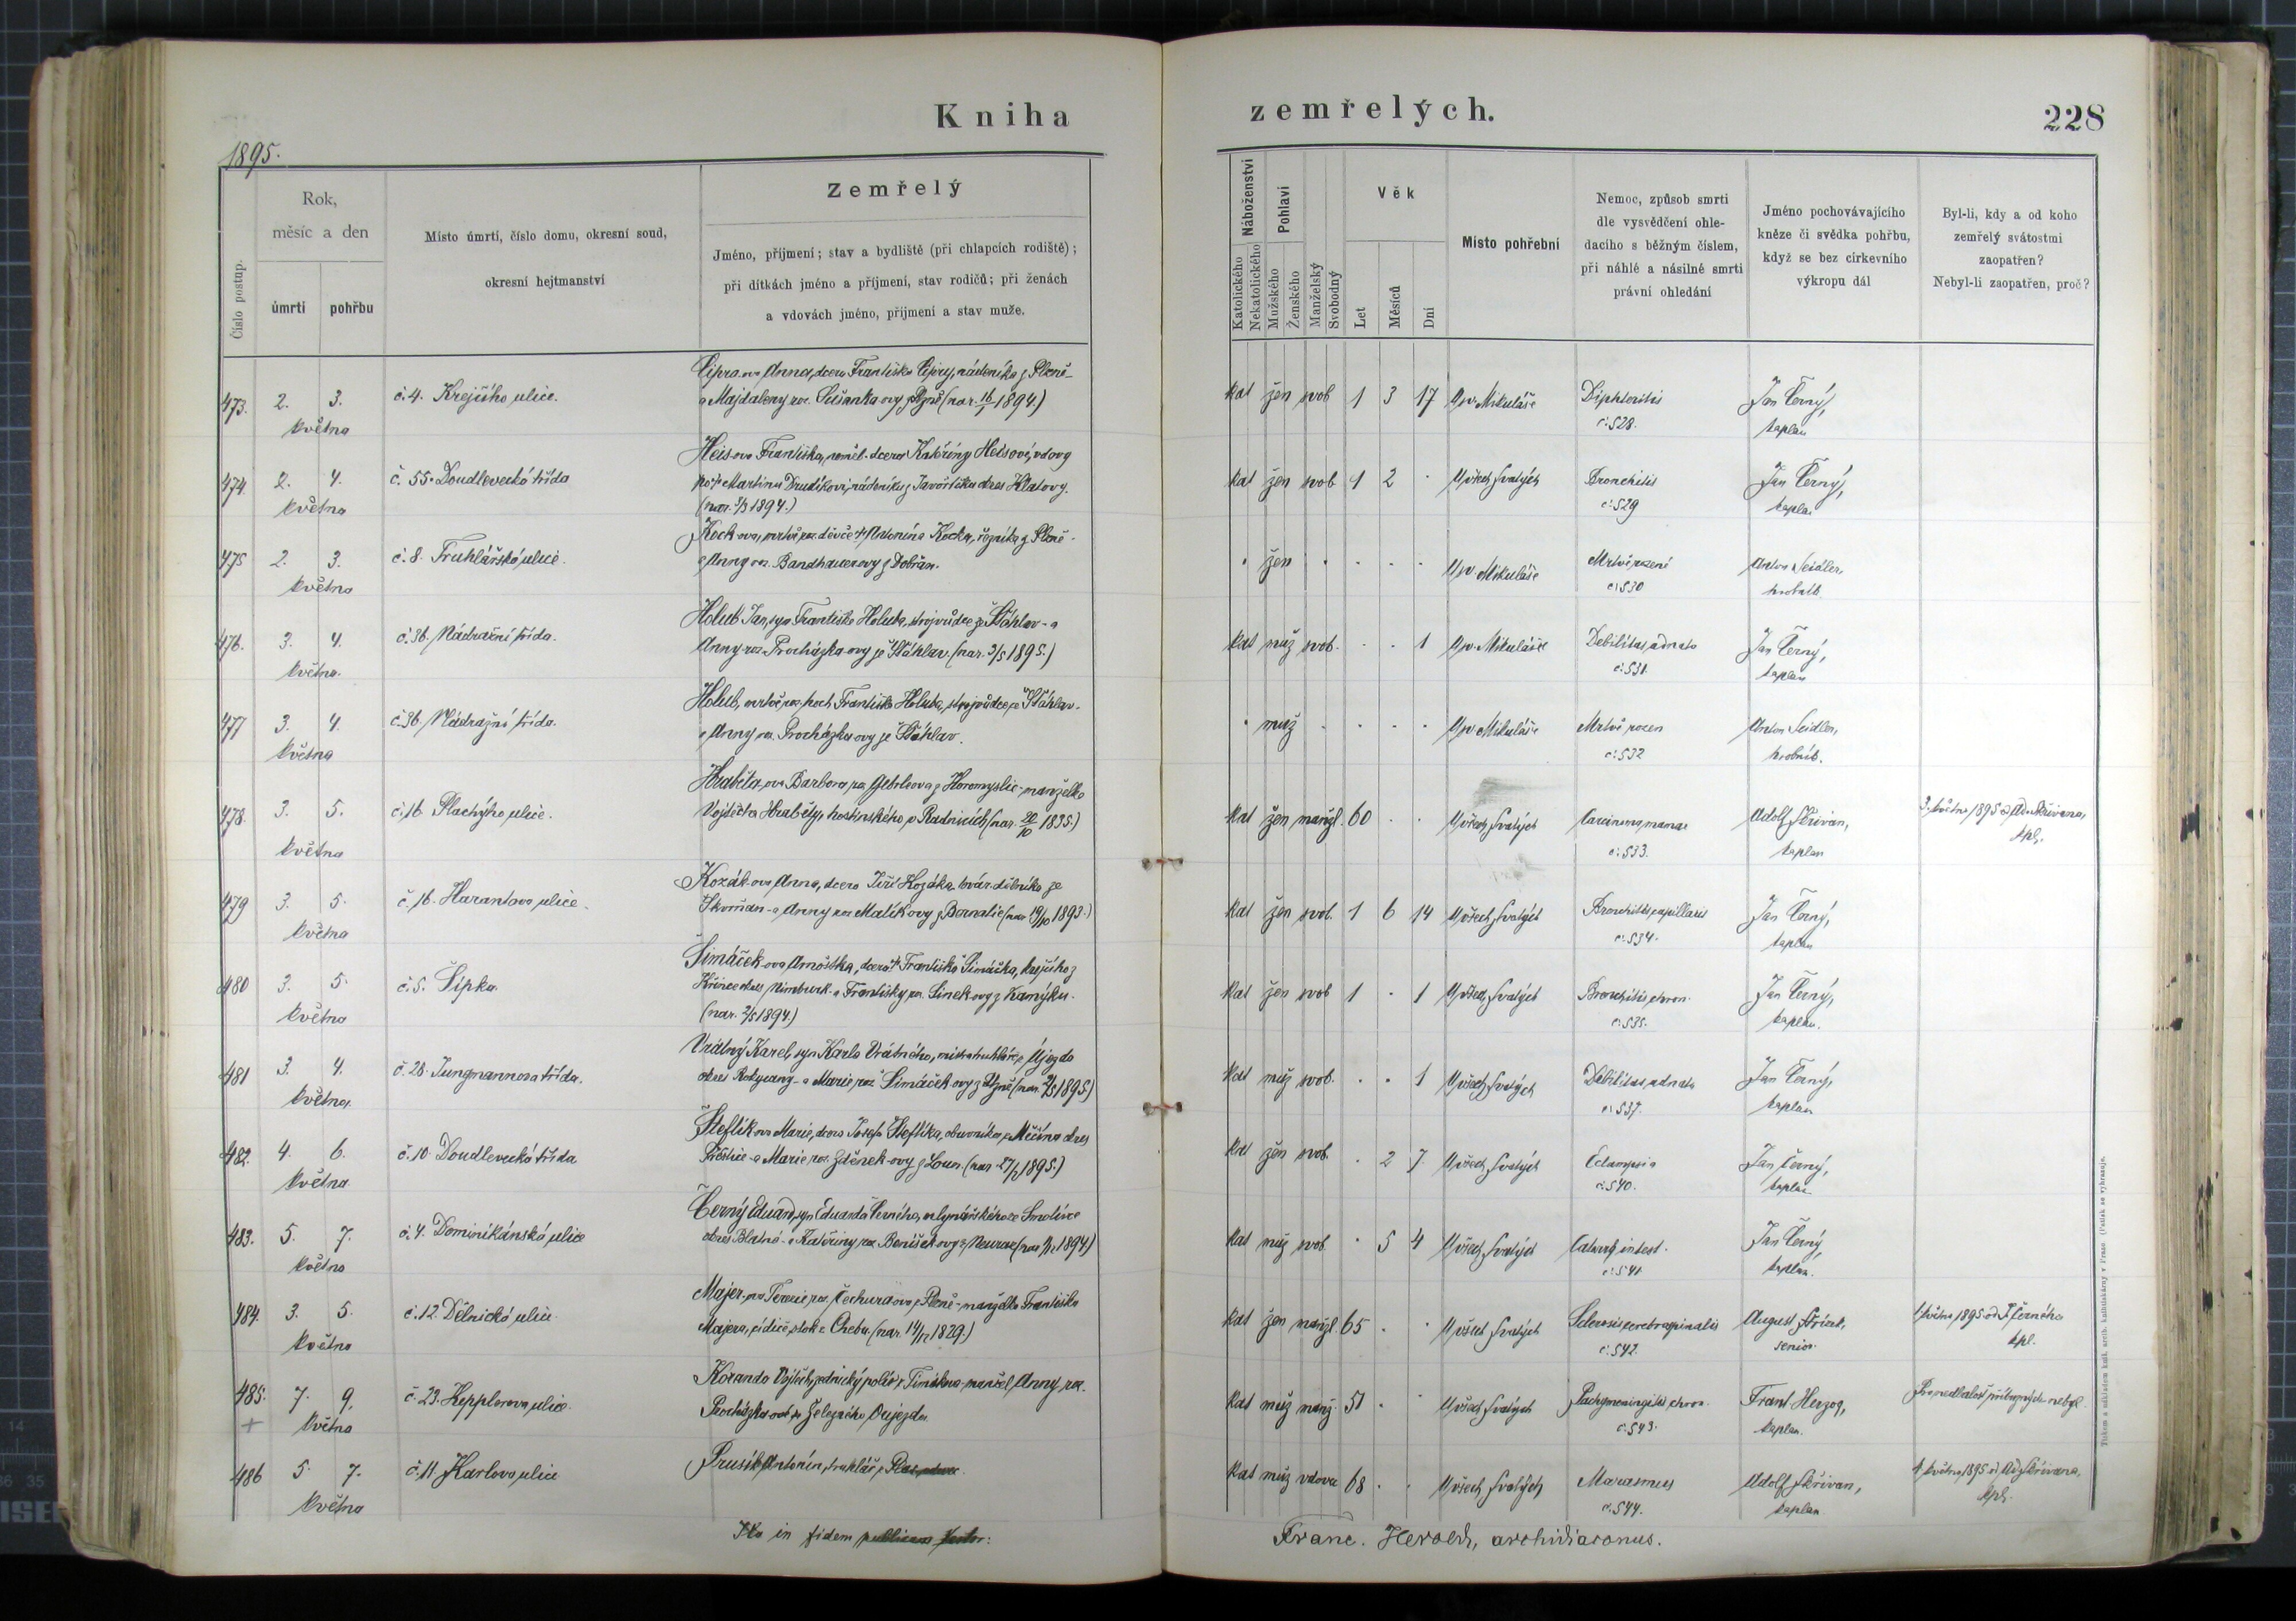 Kniha zemřelých.
228
1895.
Číslo postup.
Rok,
měsíc a den
úmrtí
pohřbu
Místo úmrtí, číslo domu, okresní soud,
okresní hejtmanství
Zemřelý
Jméno, příjmení; stav a bydliště (při chlapcích rodiště);
při dítkách jméno a příjmení, stav rodičů; při ženách
a vdovách jméno, příjmení a stav muže.
Náboženství
Katolického
Nekatolického
Pohlaví
Mužského
Ženského
Manželský
Svobodný
Věk
Let
Měsíců
Dní
Místo pohřební
Nemoc, způsob smrti
dle vysvědčení ohle-
dacího s běžným číslem,
při náhlé a násilné smrti
právní ohledání
Jméno pochovávajícího
kněze či svědka pohřbu,
když se bez církevního
výkropu dál
Byl-li, kdy a od koho
zemřelý svátostmi
zaopatřen?
Nebyl-li zaopatřen, proč?
473. 2. 3. května č. 4. Krejčího ulice.
Anna, dcera Františka nádeníka z Plzně
a Majdaleny roz. (nar. 16/1 1894.)
kat žen svob 1 3 17 U sv. Mikuláše Diphteritis č. 528. Jan Černý, kaplan
474. 2. 4. května č. 55. Doudlevecká třída
Heis-ova Františka, neml. dcera Kateřiny Heisové, vdovy
po † Martinu nádeníku z okres Klatovy.
(nar. 1/3 1894.)
kat žen svob 1 2 U všech Svatých Bronchitis č. 529 Jan Černý, kaplan
475 2. 3. května č. 8. Truhlářská ulice.
Kock-ova, mrtvě roz. děvče † Antonína Kocka, řezníka z Plzně
a Anny roz. Bandhauerovy z Dobřan.
žen U sv. Mikuláše Mrtvě rozené č. 530 Anton Seidler, hrobník.
476. 3. 4. května. č. 36. Nádražní třída.
Holub Jan, syn Františka Holuba, strojvůdce ze Šťáhlav - a
Anny roz. Procházka-ovy ze Šťáhlav. (nar. 3/5 1895.)
kat muž svob. 1 U sv. Mikuláše Debilitas adnata č. 531. Jan Černý, kaplan
477 3. 4. května č. 36. Nádražní třída.
Holub, mrtvě roz. hoch Františka Holuba, strojvůdce ze Šťáhlav -
a Anny roz. Procházka-ovy ze Šťáhlav.
muž U sv. Mikuláše Mrtvě rozen č. 532 Anton Seidler, hrobník.
478. 3. 5. května č. 16. Plachýho ulice.
Hraběta-ova Barbora roz. z Horomyslic - manželka
Vojtěcha Hraběty, hostinského v Radnicích (nar. 20/10 1835.)
kat žen manžl. 60 U všech Svatých Carcinoma mamae č. 533. Adolf Skřivan, kaplan
3. května 1895 od Ad. Skřivana, kpl.
479 3. 5. května č. 16. Harantova ulice.
Kozák-ova Anna, dcera Jiří Kozáka, továr. dělníka ze
Skvrňan - a Anny roz. Malík-ovy z (nar. 19/10 1893.)
kat žen svob. 1 6 14 U všech Svatých Bronchitis capillaris č. 534. Jan Černý, kaplan
480 3. 5. května č. 5. Šipka.
Šimáček-ova Arnoštka, dcera † Františka Šimáčka, krejčího z
Křince okres Nimburk - a Františky roz. Šinek-ovy z Kamýku.
(nar. 2/5 1894.)
kat žen svob 1 1 U všech Svatých Bronchitis chron. č. 535. Jan Černý, kaplan.
481 3. 4. května. č. 28. Jungmannova třída.
Vrátný Karel, syn Karla Vrátného, mistra truhláře z Újezda
okres Rokycany - a Marie roz. Šimáček-ovy z Plzně (nar. 2/5 1895)
kat muž svob. 1 U všech Svatých Debilitas adnata č. 537. Jan Černý, kaplan
482. 4. 6. května č. 10. Doudlevecká třída
Šteflík-ova Marie, dcera Josefa Šteflíka, obuvníka z Měčína okres
Přeštice - a Marie roz. Zděnek-ovy z Loun. (nar. 27/2 1895.)
kat žen svob. 2 7 U všech Svatých Eclampsia č. 540. Jan Černý, kaplan
483. 5. 7. května č. 4. Dominikánská ulice
Černý Eduard, syn Eduarda Černého, mlynářského ze Smolivce
okres Blatná - a Kateřiny roz. Benišek-ovy z Neuraz (nar. 1/12 1894)
kat muž svob. 5 4 U všech Svatých Catarrh. intest. č. 541. Jan Černý, kaplan.
484. 3. 5. května č. 12. Dělnická ulice.
Majer-ova Terezie roz. Čechura-ova z Plzně - manželka Františka
Majera, z Cheba. (nar. 14/12 1829.)
kat žen manžl 65 U všech Svatých Sclerosis cerebrospinalis č. 542. August senior.
1. května 1895 od J. Černého kpl.
485. 7. 9. května č. 23. Kepplerova ulice.
+
Korando Vojtěch, zednický polír z Timákova - manžel Anny roz.
Procházka-ové ze Železného Oujezda.
kat muž manž. 51 U všech Svatých Pachymeningitis chron. č. 543. Frant. Herzog, kaplan.
Pro nedbalost příbuzných nebyl.
486 5. 7. května č. 11. Karlova ulice
Prusík Antonín, truhlář z
kat muž vdovec 68 U všech Svatých Marasmus č. 544. Adolf Skřivan, kaplan
4. května 1895 od Ad. Skřivana, kpl.
Ita in fidem publicam testor:
Franc. Herold, archidiaconus.